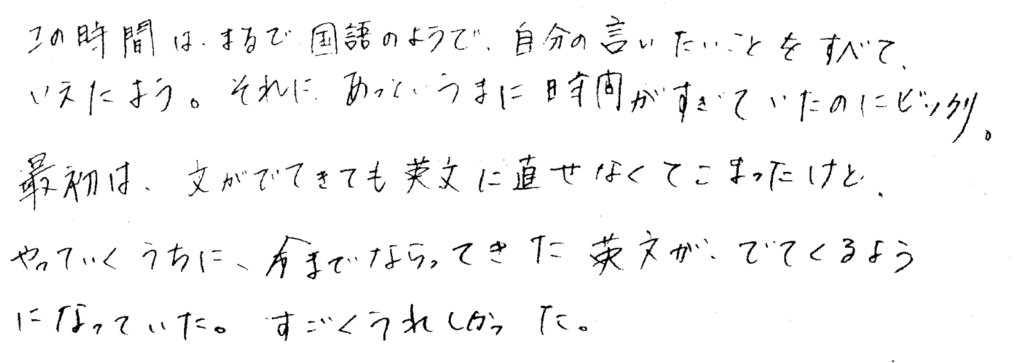 この時間は、まるで国語のようで、自分の言いたいことをすべて、
いえたよう。それに、あっというまに時間がすぎていたのにビックリ。
最初は、文がでてきても英文に直せなくてこまったけど、
やっていくうちに、今までならってきた英文が、でてくるよう
になっていた。すごくうれしかった。